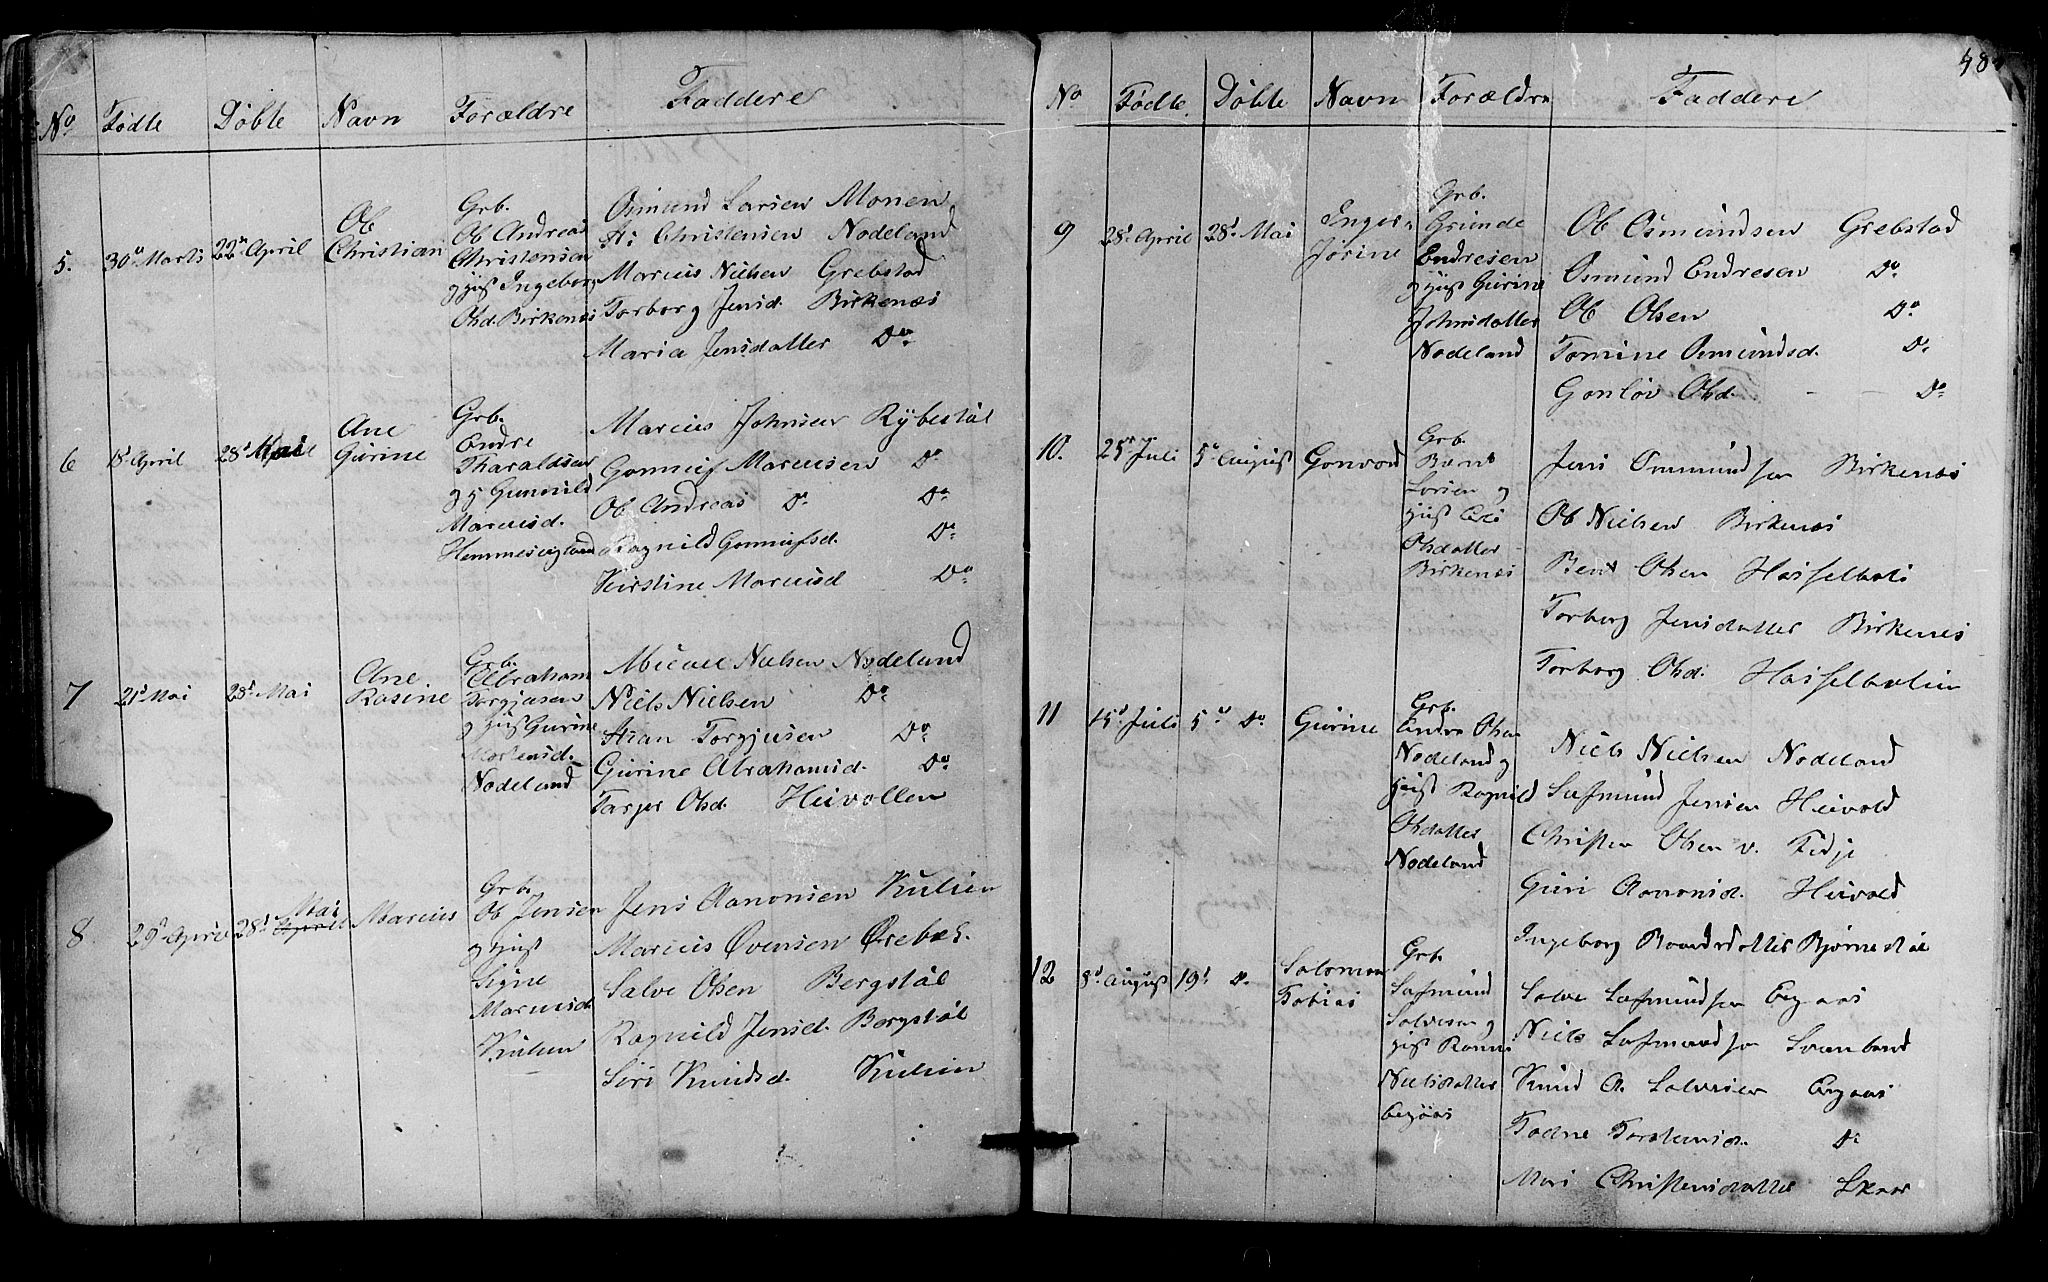 No Fødte Døbte Navn Forældre Faddere
5. 30te Marts 22de April Ob Christian
Grb.
Ob Andreas
Christensen
og Hust Ingeborg
Olsd. Birkenæs
Osmund Larsen Monen
Christensen Nodeland
Marcus Nielsen Grebstad
Torborg Jensd. Birkenæs
Maria Jensdatter Do
6 18 April 28d Mai Ane Gurine
Grb.
Endre
Tharaldsen
og Gunnild
Marcusd.
Marcus Johnsen Rybestøl
Gonnuf Marcusen Do
Ob Andreas Do Do
Ragnild Gonnufsd. Do
Kirstine Marcusd Do
7 21d Mai 28d Mai Ane Rosine
Grb.
Abraham
Torgjusen
og Hust Gurine
Mortensd.
Nodeland
Micael Nielsen Nodeland
Niels Nielsen Do
Torgjusen Do
Gurine Abrahamsd. Do
Olsd. Heivollen
8 29d April 28d Mai April Marcus
Grb.
Ob Jensen
og Hust
Signe
Marcusd.
Kulien
Jens Aanonsen Kulien
Marcus Øvensen Ørebæk.
Salve Olsen Bergstøl
Ragnild Jensd. Bergstøl
Siri Knudsd. Kulien
48
No Fødte Døbte Navn Forældre Faddere
9 28d April 28d Mai Inger Jørine
Grb.
Grunde
Endresen
og Hust Gurine
Johnsdatter
Nodeland
Ob Osmundsen Grebstad
Osmund Endresen Do
Ob Olsen Do
Tomine Osmundsd. Do
Gonløv Olsd. - - Do
10. 25de Juli 5te August Gonvor
Grb.
Bernt
Larsen og
Hust
Olsdatter
Birkenæs
Jens Ommundsen Birkenæs
Ob Nielsen Birkenæs
Bent Olsen
Torborg Jensdatter Birkenæs
Torborg Olsd.
11 15d Juli 5te Do. Gurine
Grb.
Endre Olsen
Nodeland og
Hust Ragnild
Olsdatter
Nodeland
Niels Nielsen Nodeland
Jensen Heivold
Christen Olsen v. Tedje
Guri Aanonsd. Heivold
Ingeborg Bjørnestøl
12 8d August 19d Do. Salomon Tobias
Grb.
Salvesen og
Hust
Nielsdatter
Salve
Niels
Knud A. Salvesen
Todne Torstensd. Do
Mari Christensdatter Skaar